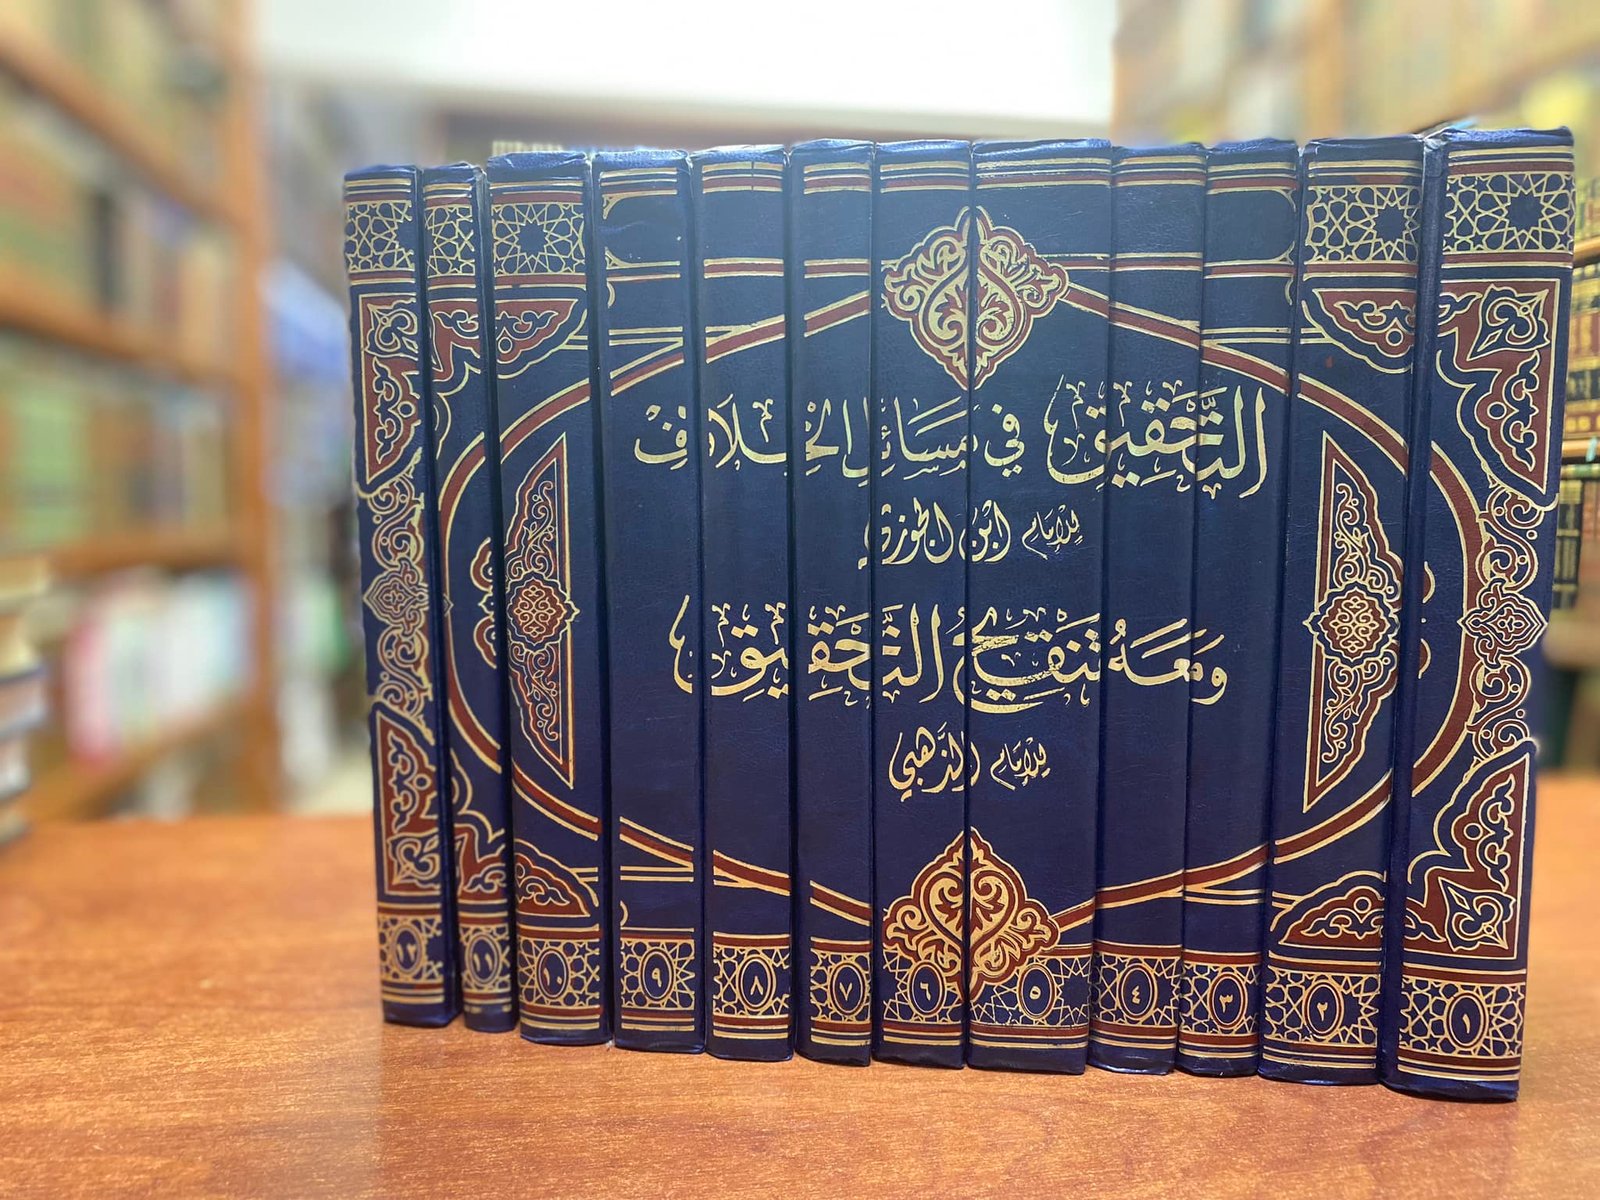 التَّحْقِيق فِي مَسَائِل الْخِلَافِ
لِلْإِمَام ابْن الْجَوْزِي
وَمَعَهُ تَنْقِيحُ التَّحْقِيقِ
لِلْإِمَام الذَّهَبِي
١ ٢ ٣ ٤ ٥ ٦ ٧ ٨ ٩ ١٠ ١١ ١٢